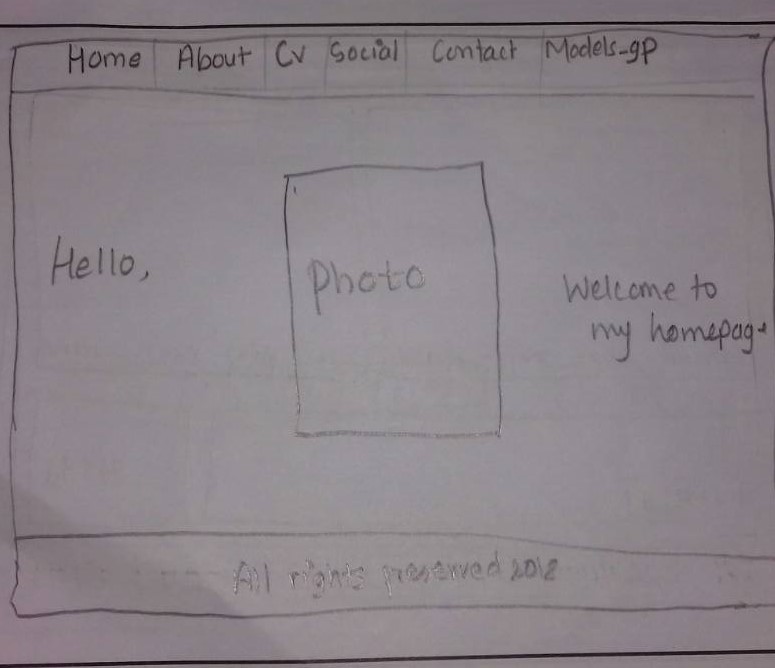 Home About Cv Social Contact Models-gp
Hello,
Photo
Welcome to
my homepage
All rights preserved 2012